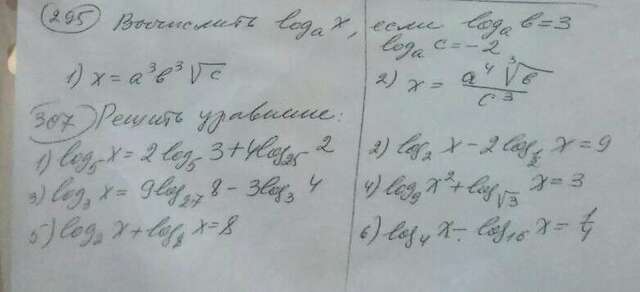 295 Вычислить logₐ x, если logₐ b = 3
logₐ c = -2
1) x = a³b³√c
2) x = a⁴ ∛b / c³
307 Решить уравнение:
1) log₅ x = 2 log₅ 3 + 4 log₂₅ 2
2) log₂ x - 2 log_½ x = 9
3) log₃ x = 9 log₂₇ 8 - 3 log₃ 4
4) log₉ x² + log_√3 x = 3
5) log₂ x + log₈ x = 8
6) log₄ x - log₁₆ x = 1/4